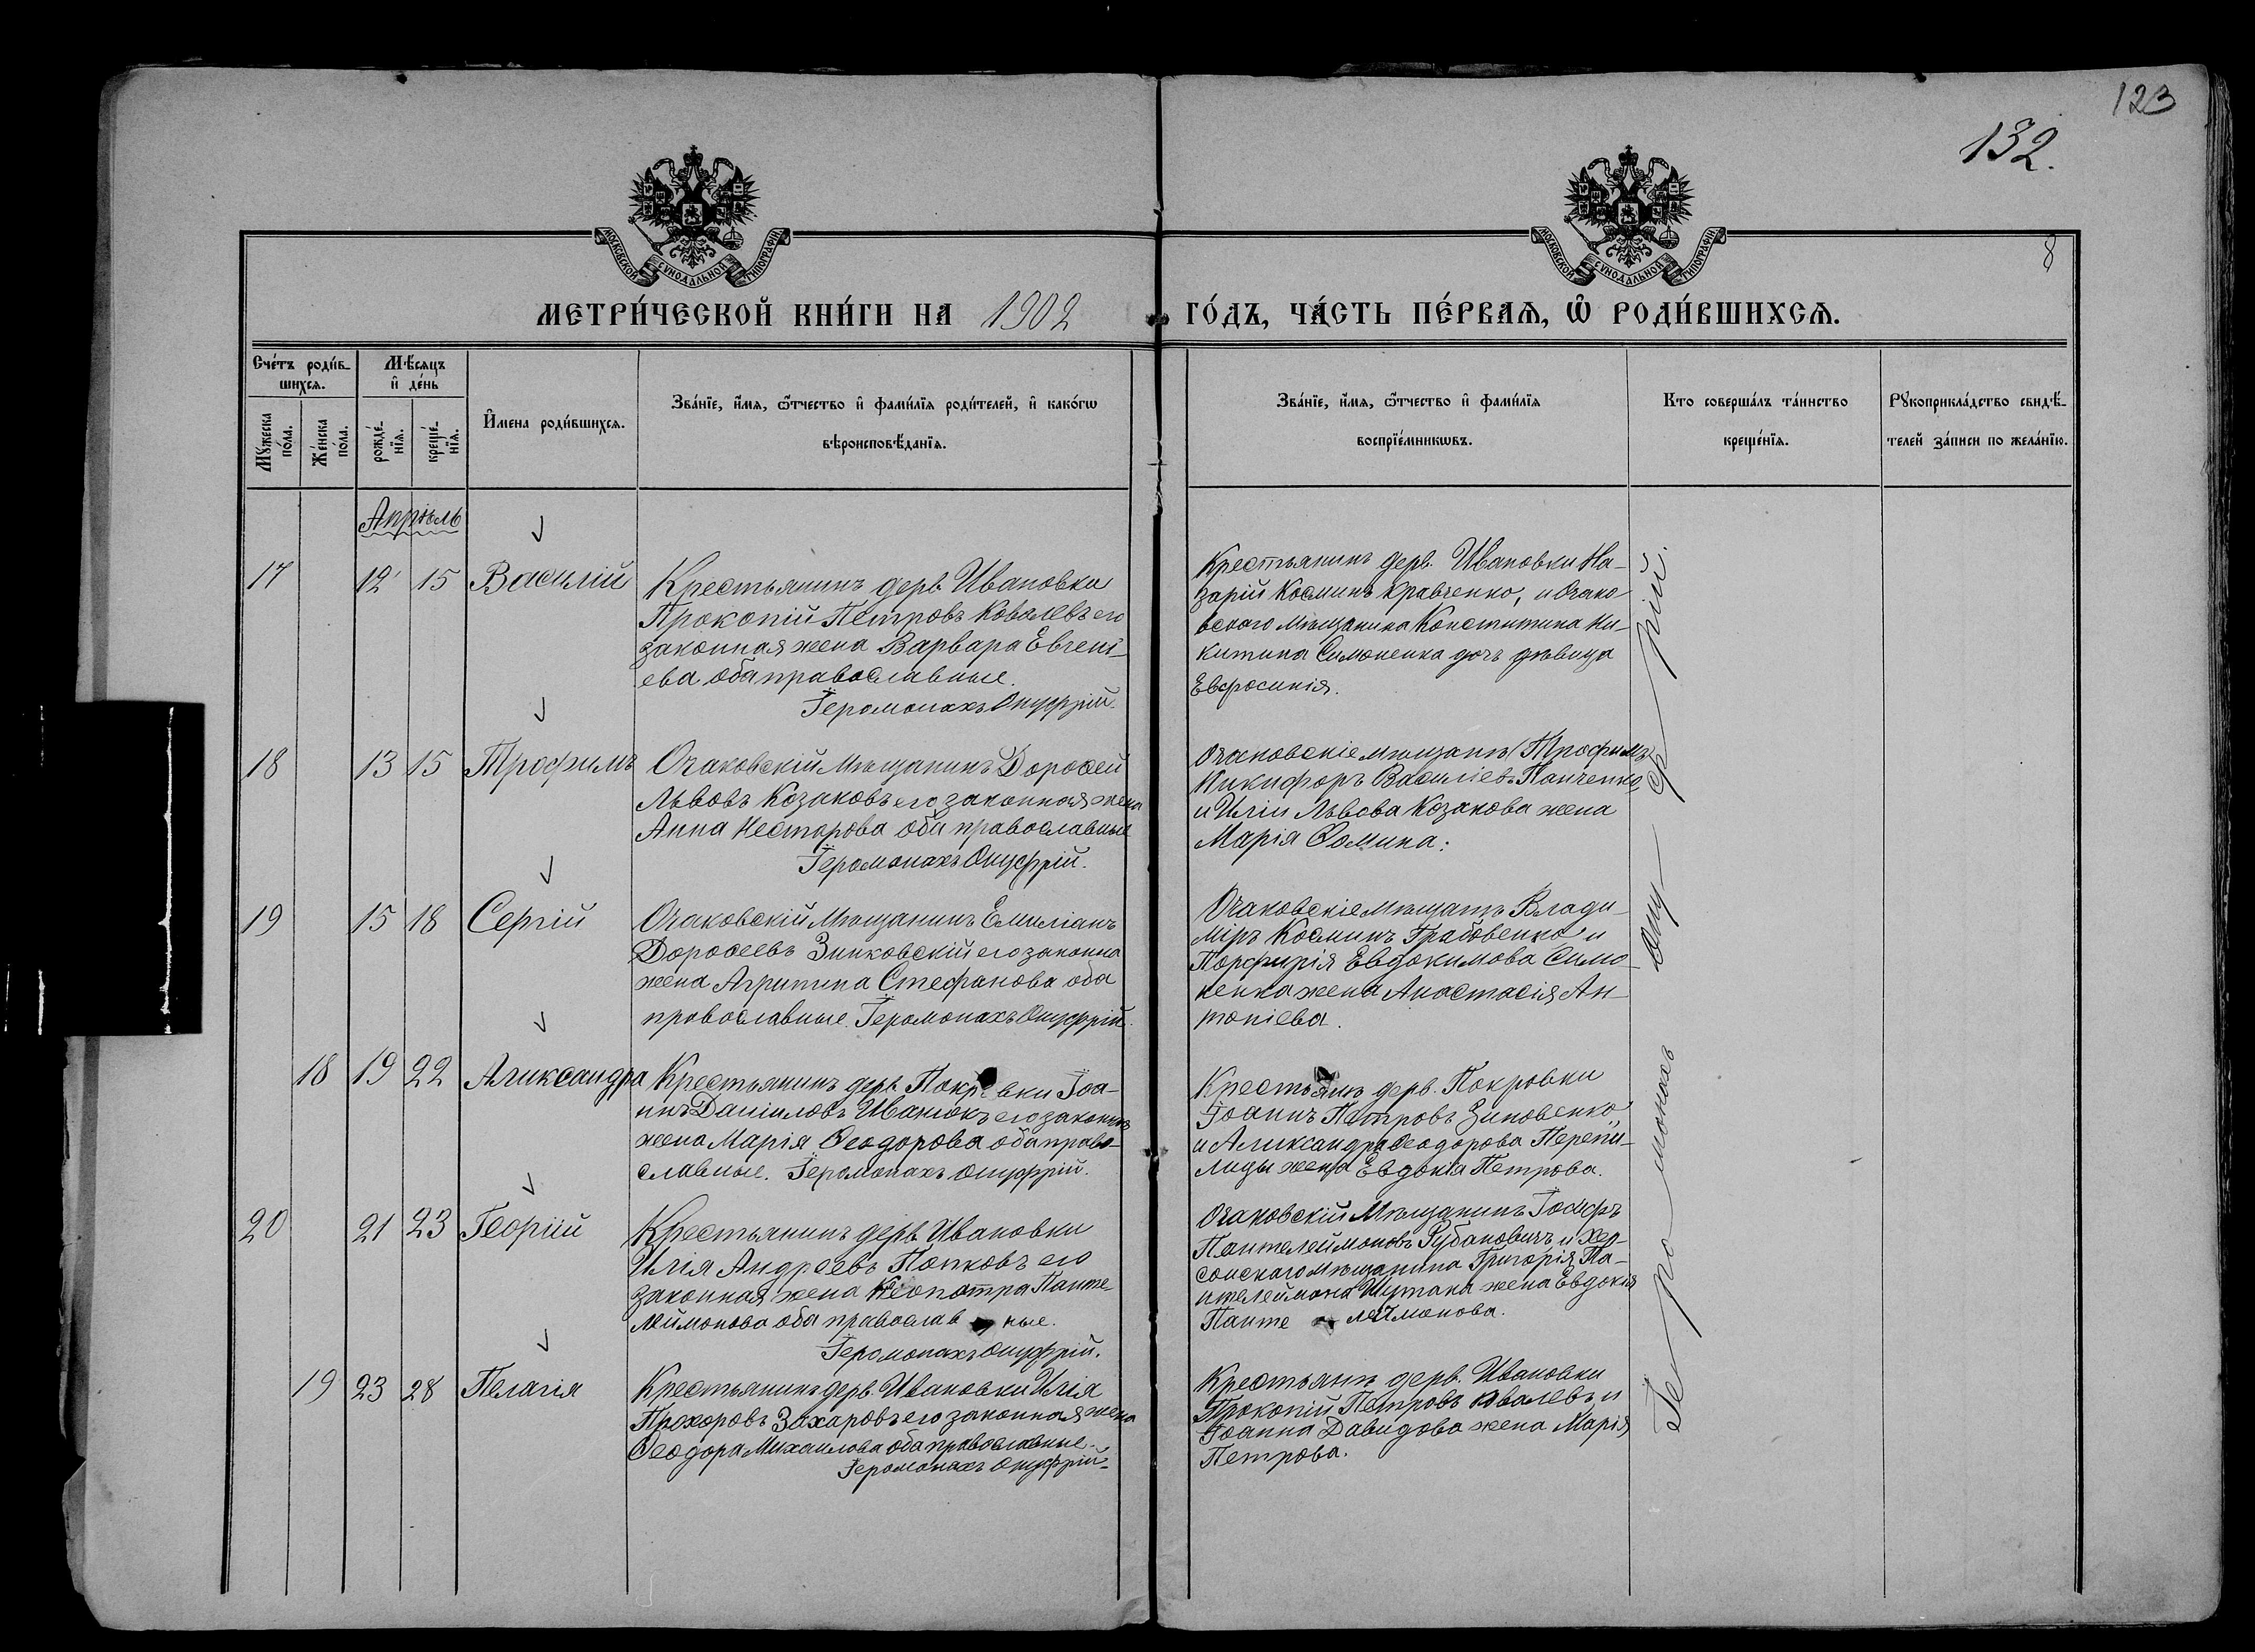 123
132.
8
МОСКОВСКОЙ СѴНОДАЛЬНОЙ ТИПОГРАФІИ
МОСКОВСКОЙ СѴНОДАЛЬНОЙ ТИПОГРАФІИ
МЕТРИ́ЧЕСКОЙ КНИ́ГИ НА 1902 ГО́ДЪ, ЧА́СТЬ ПЕ́РВАѦ, Ѡ РОДИ́ВШИХСѦ.
Сче́тъ роди́в-
шихсѧ.
Мѣ́сяцъ
и҆ де́нь
Мꙋ́жеска по́ла.
Же́нска по́ла.
рожде́-
нїѧ.
креще́-
нїѧ.
И҆мена роди́вшихсѧ.
Зва́нїе, и҆́мѧ, ѻ҆́тчество и҆ фами́лїѧ роди́телей, и҆ како́гѡ
вѣроисповѣ́данїѧ.
Зва́нїе, и҆́мѧ, ѻ҆́тчество и҆ фами́лїѧ
воспрїе́мникѡвъ.
Кто соверша́лъ та́инство
креще́нїѧ.
Рꙋкоприкла́дство свидѣ́-
телей за́писи по жела́нїю.
Апрѣль
17 12 15 Василій
Крестьянинъ дерв. Ивановки
Прокопій Петровъ Ковалевъ его
законная жена Варвара Евгені-
ева оба православные.
Іеромонахъ Онуфрій.
Крестьянинъ дерв. Ивановки На-
зарій Косминъ Кравченко, и Очако
вскаго мѣщанина Константина Ни-
китина Симоненка дочь дѣвица
Евфросинія.
18 13 15 Трофимъ
Очаковскій мѣщанинъ Дорофей
Львовъ Козаковъ его законная жена
Анна Несторова оба православные
Іеромонахъ Онуфрій.
Очаковскіе мѣщанъ Трофимъ
Никифоръ Василіевъ Панченко
и Иліи Львова Козакова жена
Марія Ѳомина.
19 15 18 Сергій
Очаковскій мѣщанинъ Емиліанъ
Дорофеевъ Зинковскій его законна
жена Агрипина Стефанова оба
православные. Іеромонахъ Онуфрій.
Очаковскіе мѣщанъ Влади-
міръ Косминъ Грабовенко и
Порфирія Евдокимова Симо-
ненка жена Анастасія Ан-
тоніева.
18 19 22 Аликсандра
Крестьянинъ дерв. Покровки Іоа-
ннъ Даніиловъ Иванюкъ его законная
жена Марія Ѳеодорова оба право-
славные. Іеромонахъ Онуфрій.
Крестьянъ дерв. Покровки
Іоаннъ Петровъ Зиновенко
и Аликсандра Ѳеодорова Перепи-
лицы жена Евдокія Петрова.
20 21 23 Георгій
Крестьянинъ дерв. Ивановки
Илія Андреевъ Попковъ его
законная жена Клеопатра Панте-
леймонова оба православные.
Іеромонахъ Онуфрій.
Очаковскій мѣщанинъ Іосифъ
Пантелеймоновъ Рубановичъ и Хер-
сонскаго мѣщанина Григорія Па-
нтелеймона Шутака жена Евдокія
Пантелеймонова.
19 23 28 Пелагія
Крестьянинъ дерв. Ивановки Илія
Прохоровъ Захаровъ его законная жена
Ѳеодора Михаилова оба православные.
Іеромонахъ Онуфрій.
Крестьянъ дерв. Ивановки
Прокопій Петровъ Ковалевъ и
Іоанна Давидова жена Марія
Петрова.
Іеромонахъ Онуфрій.